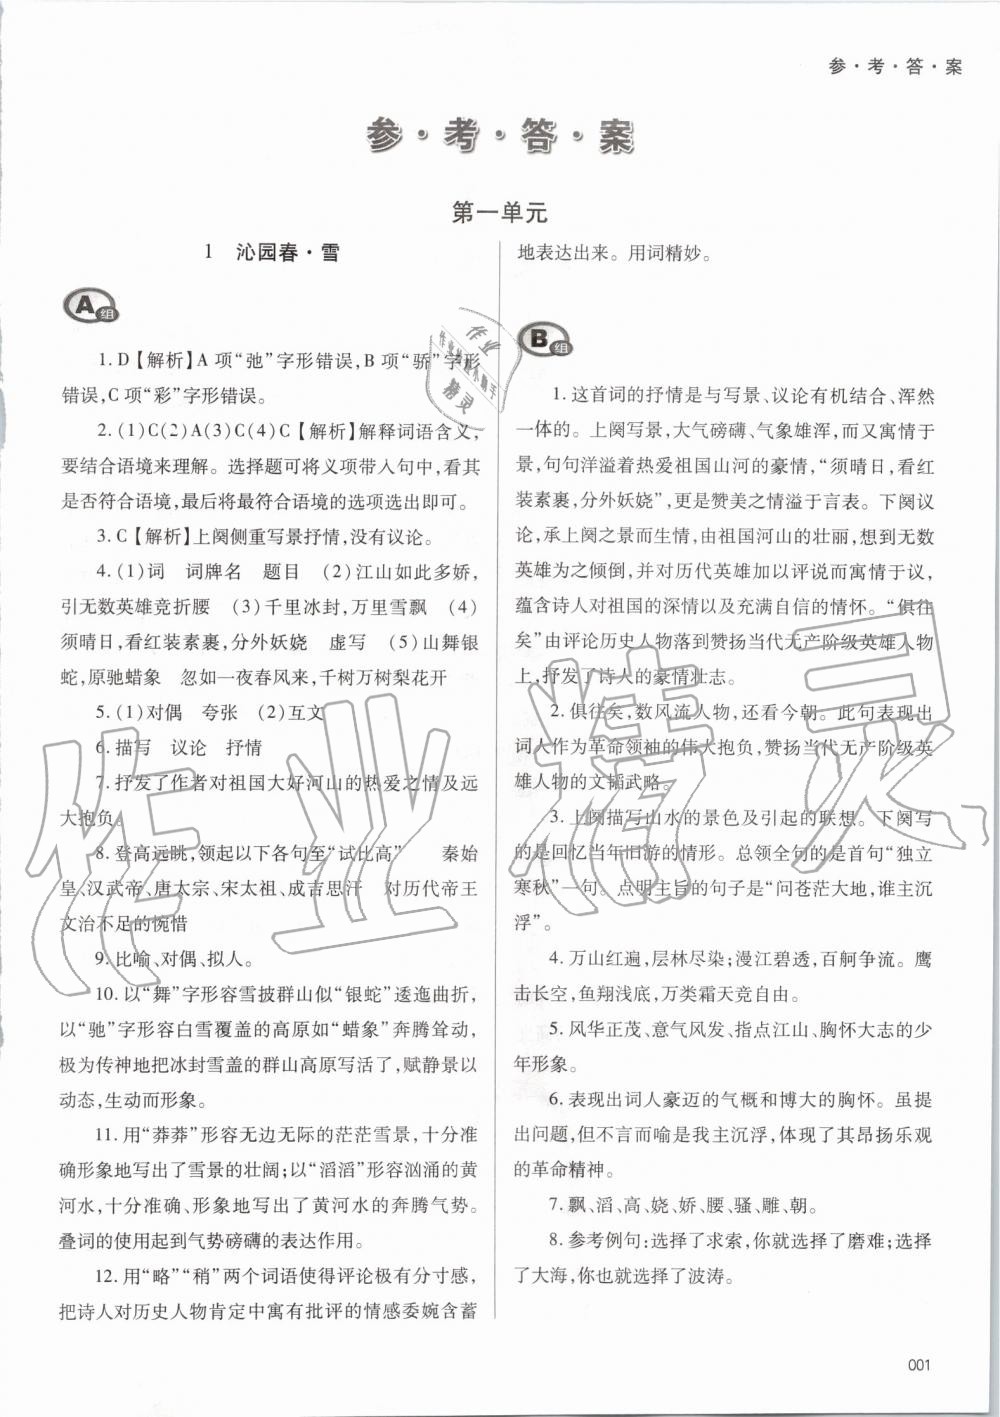 参·考·答·案
参·考·答·案
第一单元
1 沁园春·雪
A组
1. D【解析】A 项“弛”字形错误,B 项“骄”字形
错误,C 项“彩”字形错误。
2. (1)C(2)A(3)C(4)C【解析】解释词语含义,
要结合语境来理解。选择题可将义项带入句中,看其
是否符合语境,最后将最符合语境的选项选出即可。
3. C【解析】上阕侧重写景抒情,没有议论。
4. (1)词 词牌名 题目 (2)江山如此多娇,
引无数英雄竞折腰 (3)千里冰封,万里雪飘 (4)
须晴日,看红装素裹,分外妖娆 虚写 (5)山舞银
蛇,原驰蜡象 忽如一夜春风来,千树万树梨花开
5. (1)对偶 夸张 (2)互文
6. 描写 议论 抒情
7. 抒发了作者对祖国大好河山的热爱之情及远
大抱负。
8. 登高远眺,领起以下各句至“试比高” 秦始
皇、汉武帝、唐太宗、宋太祖、成吉思汗 对历代帝王
文治不足的惋惜
9. 比喻、对偶、拟人。
10. 以“舞”字形容雪披群山似“银蛇”逶迤曲折,
以“驰”字形容白雪覆盖的高原如“蜡象”奔腾耸动,
极为传神地把冰封雪盖的群山高原写活了,赋静景以
动态,生动而形象。
11. 用“莽莽”形容无边无际的茫茫雪景,十分准
确形象地写出了雪景的壮阔;以“滔滔”形容汹涌的黄
河水,十分准确、形象地写出了黄河水的奔腾气势。
叠词的使用起到气势磅礴的表达作用。
12. 用“略”“稍”两个词语使得评论极有分寸感,
把诗人对历史人物肯定中寓有批评的情感委婉含蓄
地表达出来。用词精妙。
B组
1. 这首词的抒情是与写景、议论有机结合、浑然
一体的。上阕写景,大气磅礴、气象雄浑,而又寓情于
景,句句洋溢着热爱祖国山河的豪情,“须晴日,看红
装素裹,分外妖娆”,更是赞美之情溢于言表。下阕议
论,承上阕之景而生情,由祖国河山的壮丽,想到无数
英雄为之倾倒,并对历代英雄加以评说而寓情于议,
蕴含诗人对祖国的深情以及充满自信的情怀。“俱往
矣”由评论历史人物落到赞扬当代无产阶级英雄人物
上,抒发了诗人的豪情壮志。
2. 俱往矣,数风流人物,还看今朝。此句表现出
词人作为革命领袖的伟大抱负,赞扬当代无产阶级英
雄人物的文韬武略。
3. 上阕描写山水的景色及引起的联想。下阕写
的是回忆当年旧游的情形。总领全句的是首句“独立
寒秋”一句。点明主旨的句子是“问苍茫大地,谁主沉
浮”。
4. 万山红遍,层林尽染;漫江碧透,百舸争流。鹰
击长空,鱼翔浅底,万类霜天竞自由。
5. 风华正茂、意气风发、指点江山、胸怀大志的少
年形象。
6. 表现出词人豪迈的气概和博大的胸怀。虽提
出问题,但不言而喻是我主沉浮,体现了其昂扬乐观
的革命精神。
7. 飘、滔、高、娆、娇、腰、骚、雕、朝。
8. 参考例句:选择了求索,你就选择了磨难;选择
了大海,你也就选择了波涛。
001
作业精灵
作业
精灵